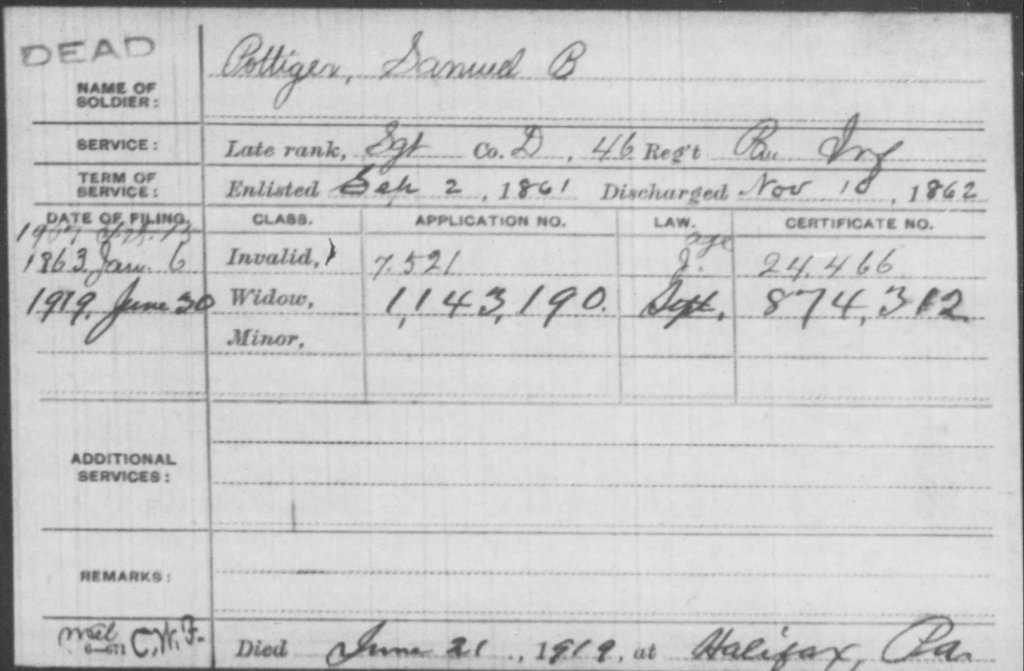 DEAD
NAME OF SOLDIER: Pottiger, Samuel B
SERVICE: Late rank, Sgt Co. D, 46 Reg't Pa. Inf
TERM OF SERVICE: Enlisted Sep 2, 1861 Discharged Nov 10, 1862
DATE OF FILING. CLASS. APPLICATION NO. LAW. CERTIFICATE NO.
1907
age
1863 Jan. 6 Invalid, 7.521 J. 24.466
1919, June 30 Widow, 1,143,190. Sept. 874,312
Minor,
ADDITIONAL SERVICES:
REMARKS:
6—671 C.W.F. Died June 21, 1919, at Halifax, Pa.